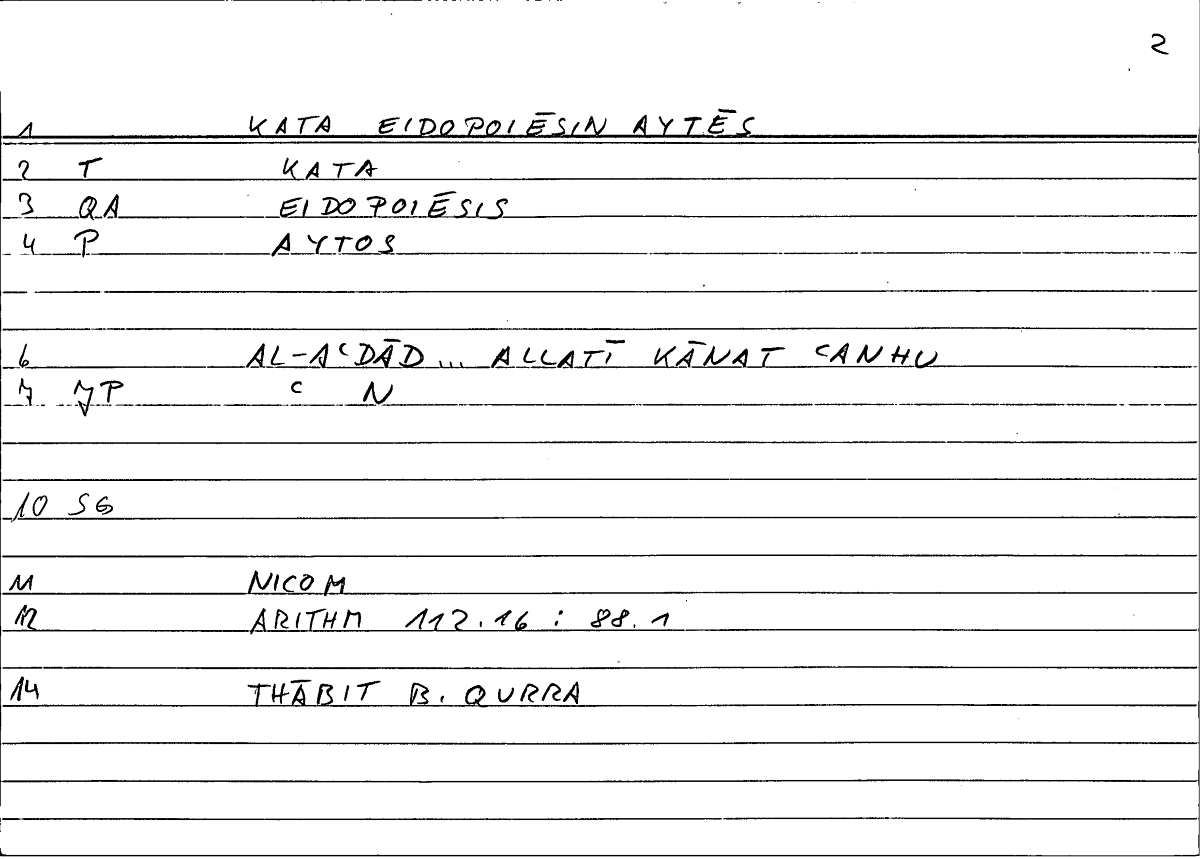 2
1 KATA EIDOPOIĒSIN AYTĒS
2 T KATA
3 QA EIDOPOIĒSIS
4 P AYTOS
6 AL-AʿDĀD... ALLATĪ KĀNAT ʿANHU
7 JP ʿ N
10 SG
11 NICOM
12 ARITHM 112.16 : 88.1
14 THĀBIT B. QURRA